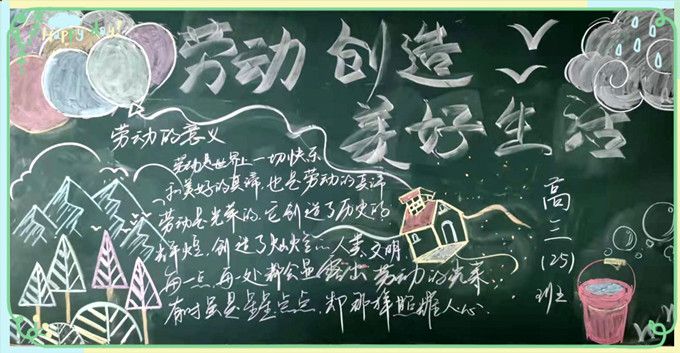 Happy day!
劳动创造
美好生活
劳动的意义
劳动是世界上一切快乐
和美好的真谛,也是劳动的真谛
劳动是光荣的.它创造了历史的
创造了灿烂……人类文明
每一点,每一处都会显露出劳动的光荣
有时虽是星星点点,却那样照耀人心.
高三(25)班